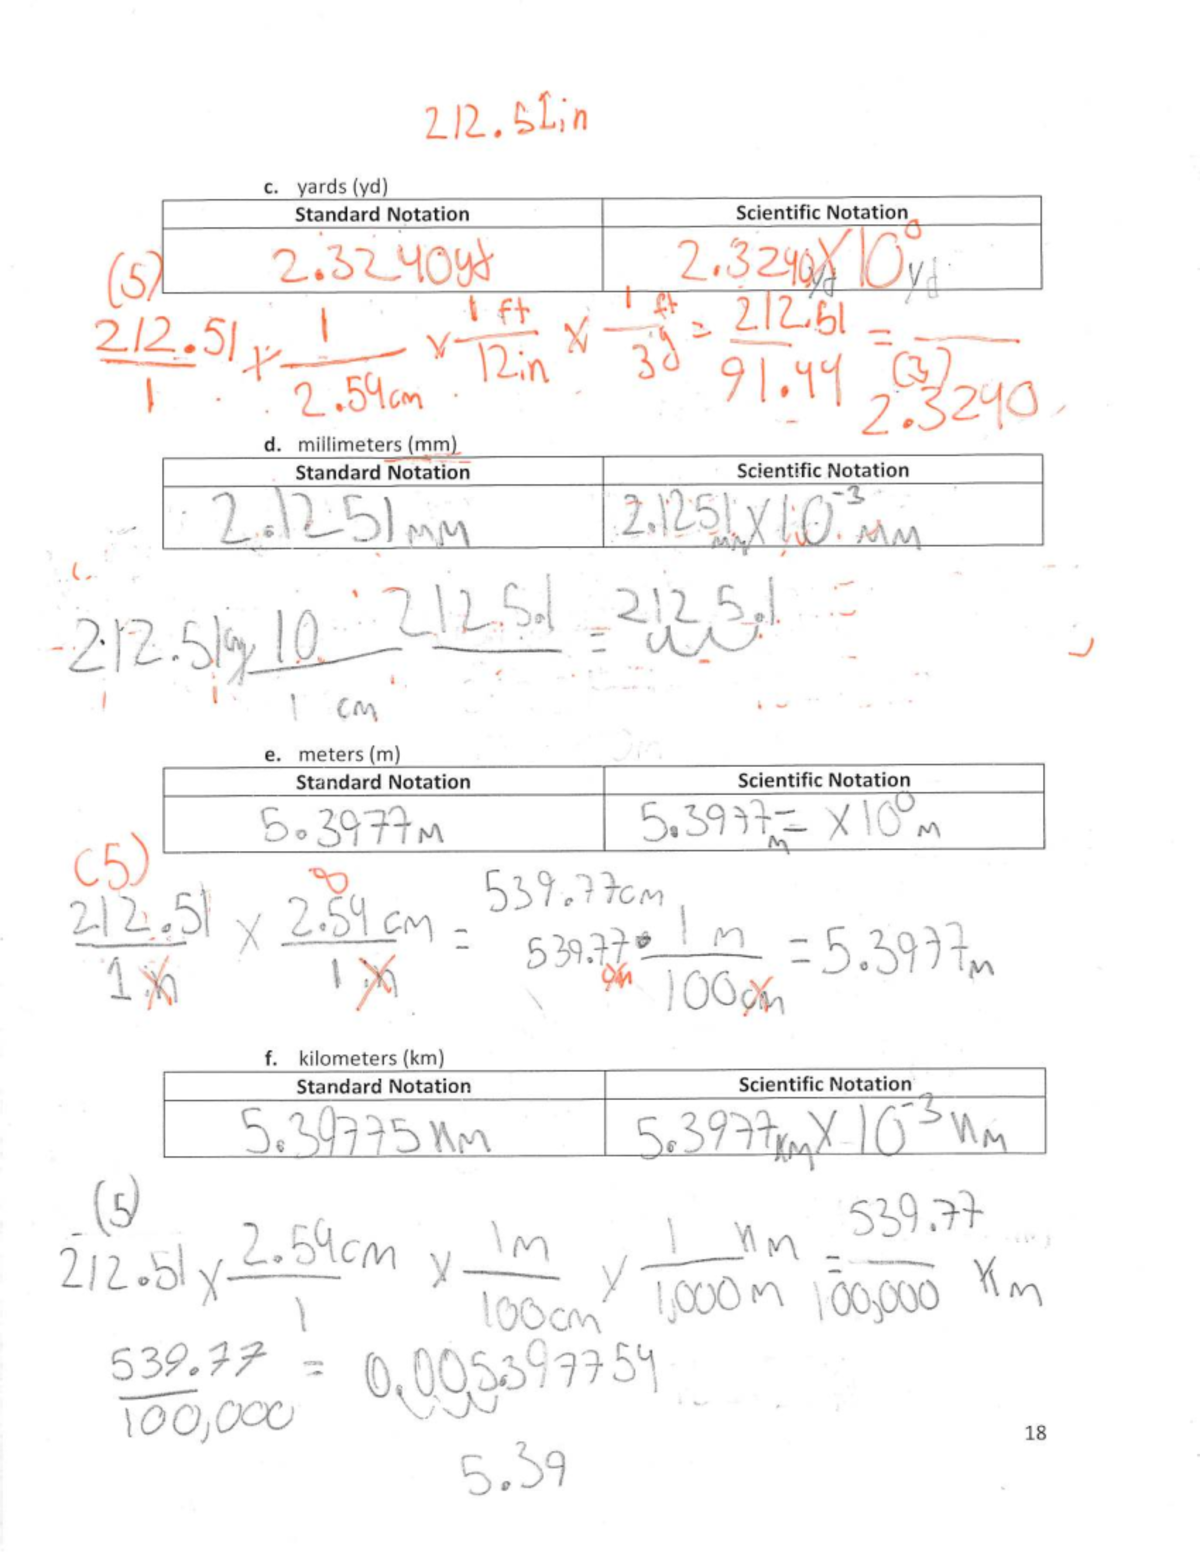 212.51in
c. yards (yd)
Standard Notation Scientific Notation
2.3240yd 2.3240yd X 10⁰ yd
(5)
212.51/1 x 1/2.54cm x 1 ft/12in x 1 ft/3y = 212.51/91.44 = (3) 2.3240
d. millimeters (mm)
Standard Notation Scientific Notation
2.1251mm 2.1251mm X 10⁻³ mm
212.51 10/1 cm 212.5.1 = 212 5.1
e. meters (m)
Standard Notation Scientific Notation
5.3977m 5.3977m = X 10⁰ m
(5)
212.51/1 in x 2.54 cm/1 in = 539.77cm
539.77 cm • 1 m/100cm = 5.3977m
f. kilometers (km)
Standard Notation Scientific Notation
5.39775 Km 5.3977km X 10⁻³ Km
(5)
212.51 x 2.54cm/1 x 1m/100cm x 1 Km/1,000m = 539.77/100,000 Km
539.77/100,000 = 0.005.397754
18
5.39